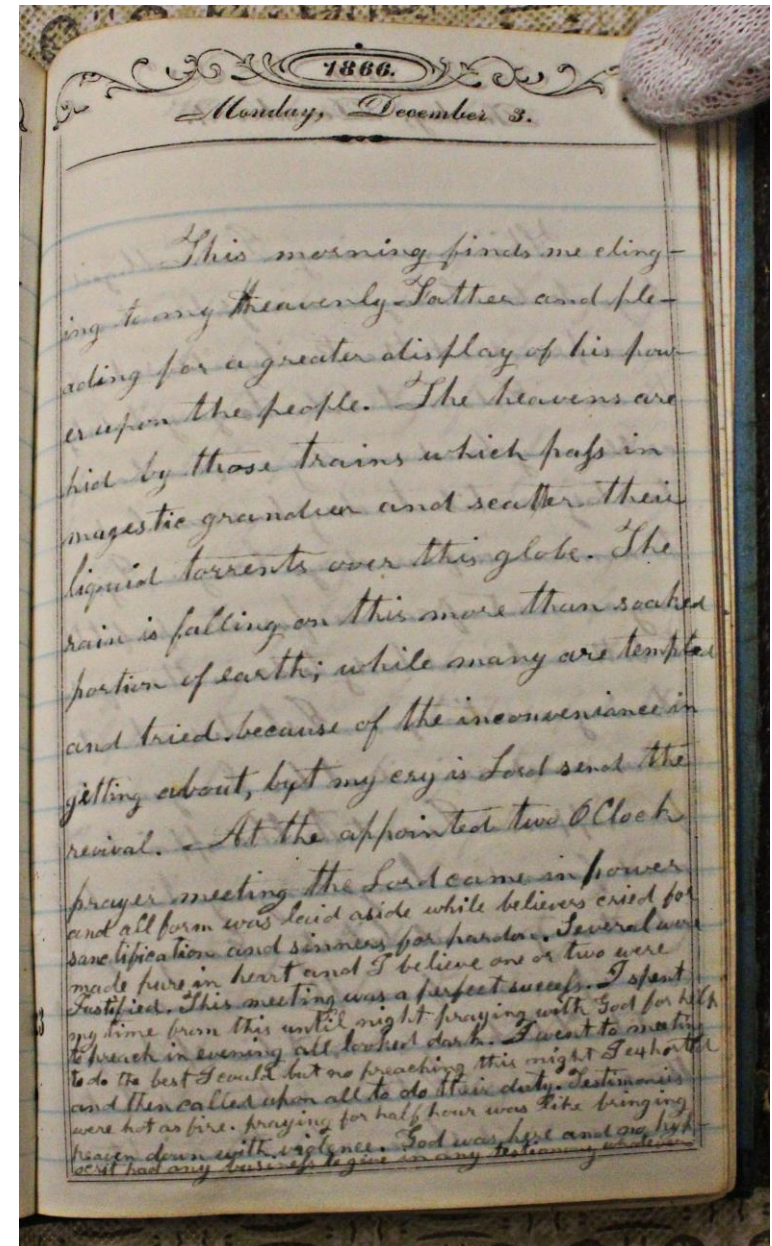 1866.
Monday, December 3.
This morning finds me cling-
ing to my Heavenly Father and ple-
ading for a greater display of his pow-
er upon the people. The heavens are
hid by those trains which pass in
magestic grandeur and scatter their
liquid torrents over this globe. The
rain is falling on this more than soaked
portion of earth; while many are tempted
and tried because of the inconveniance in
getting about, but my cry is Lord send the
revival. - At the appointed two OClock
prayer meeting the Lord came in power
and all form was laid aside while believers cried for
sanctification and sinners for pardon. Several were
made pure in heart and I believe one or two were
Justified. This meeting was a perfect success. I spent
my time from this until night praying with God for help
to preach in evening all looked dark. I went to meeting
to do the best I could but no preaching this night I exhorted
and then called upon all to do their duty. Testimonies
were hot as fire. praying for half hour was like bringing
heaven down with violence. God was here and no hyp-
ocrit had any business to give in any testimony whatever